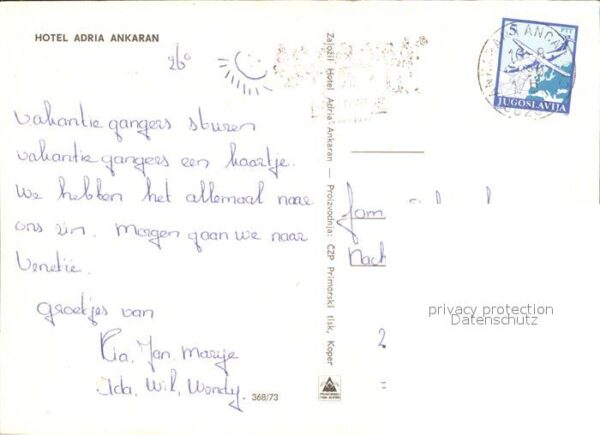 HOTEL ADRIA ANKARAN
26°
Vakantie gangers sturen
vakantie gangers een kaartje.
We hebben het allemaal naar
ons zin. Morgen gaan we naar
Venetië.
Groetjes van
Ria, Jan, Marije
Ida, Wil, Wendy.
368/73
Založil Hotel Adria Ankaran — Proizvodnja: ČZP Primorski tisk, Koper
5
PTT
JUGOSLAVIJA
Fam
privacy protection
Datenschutz